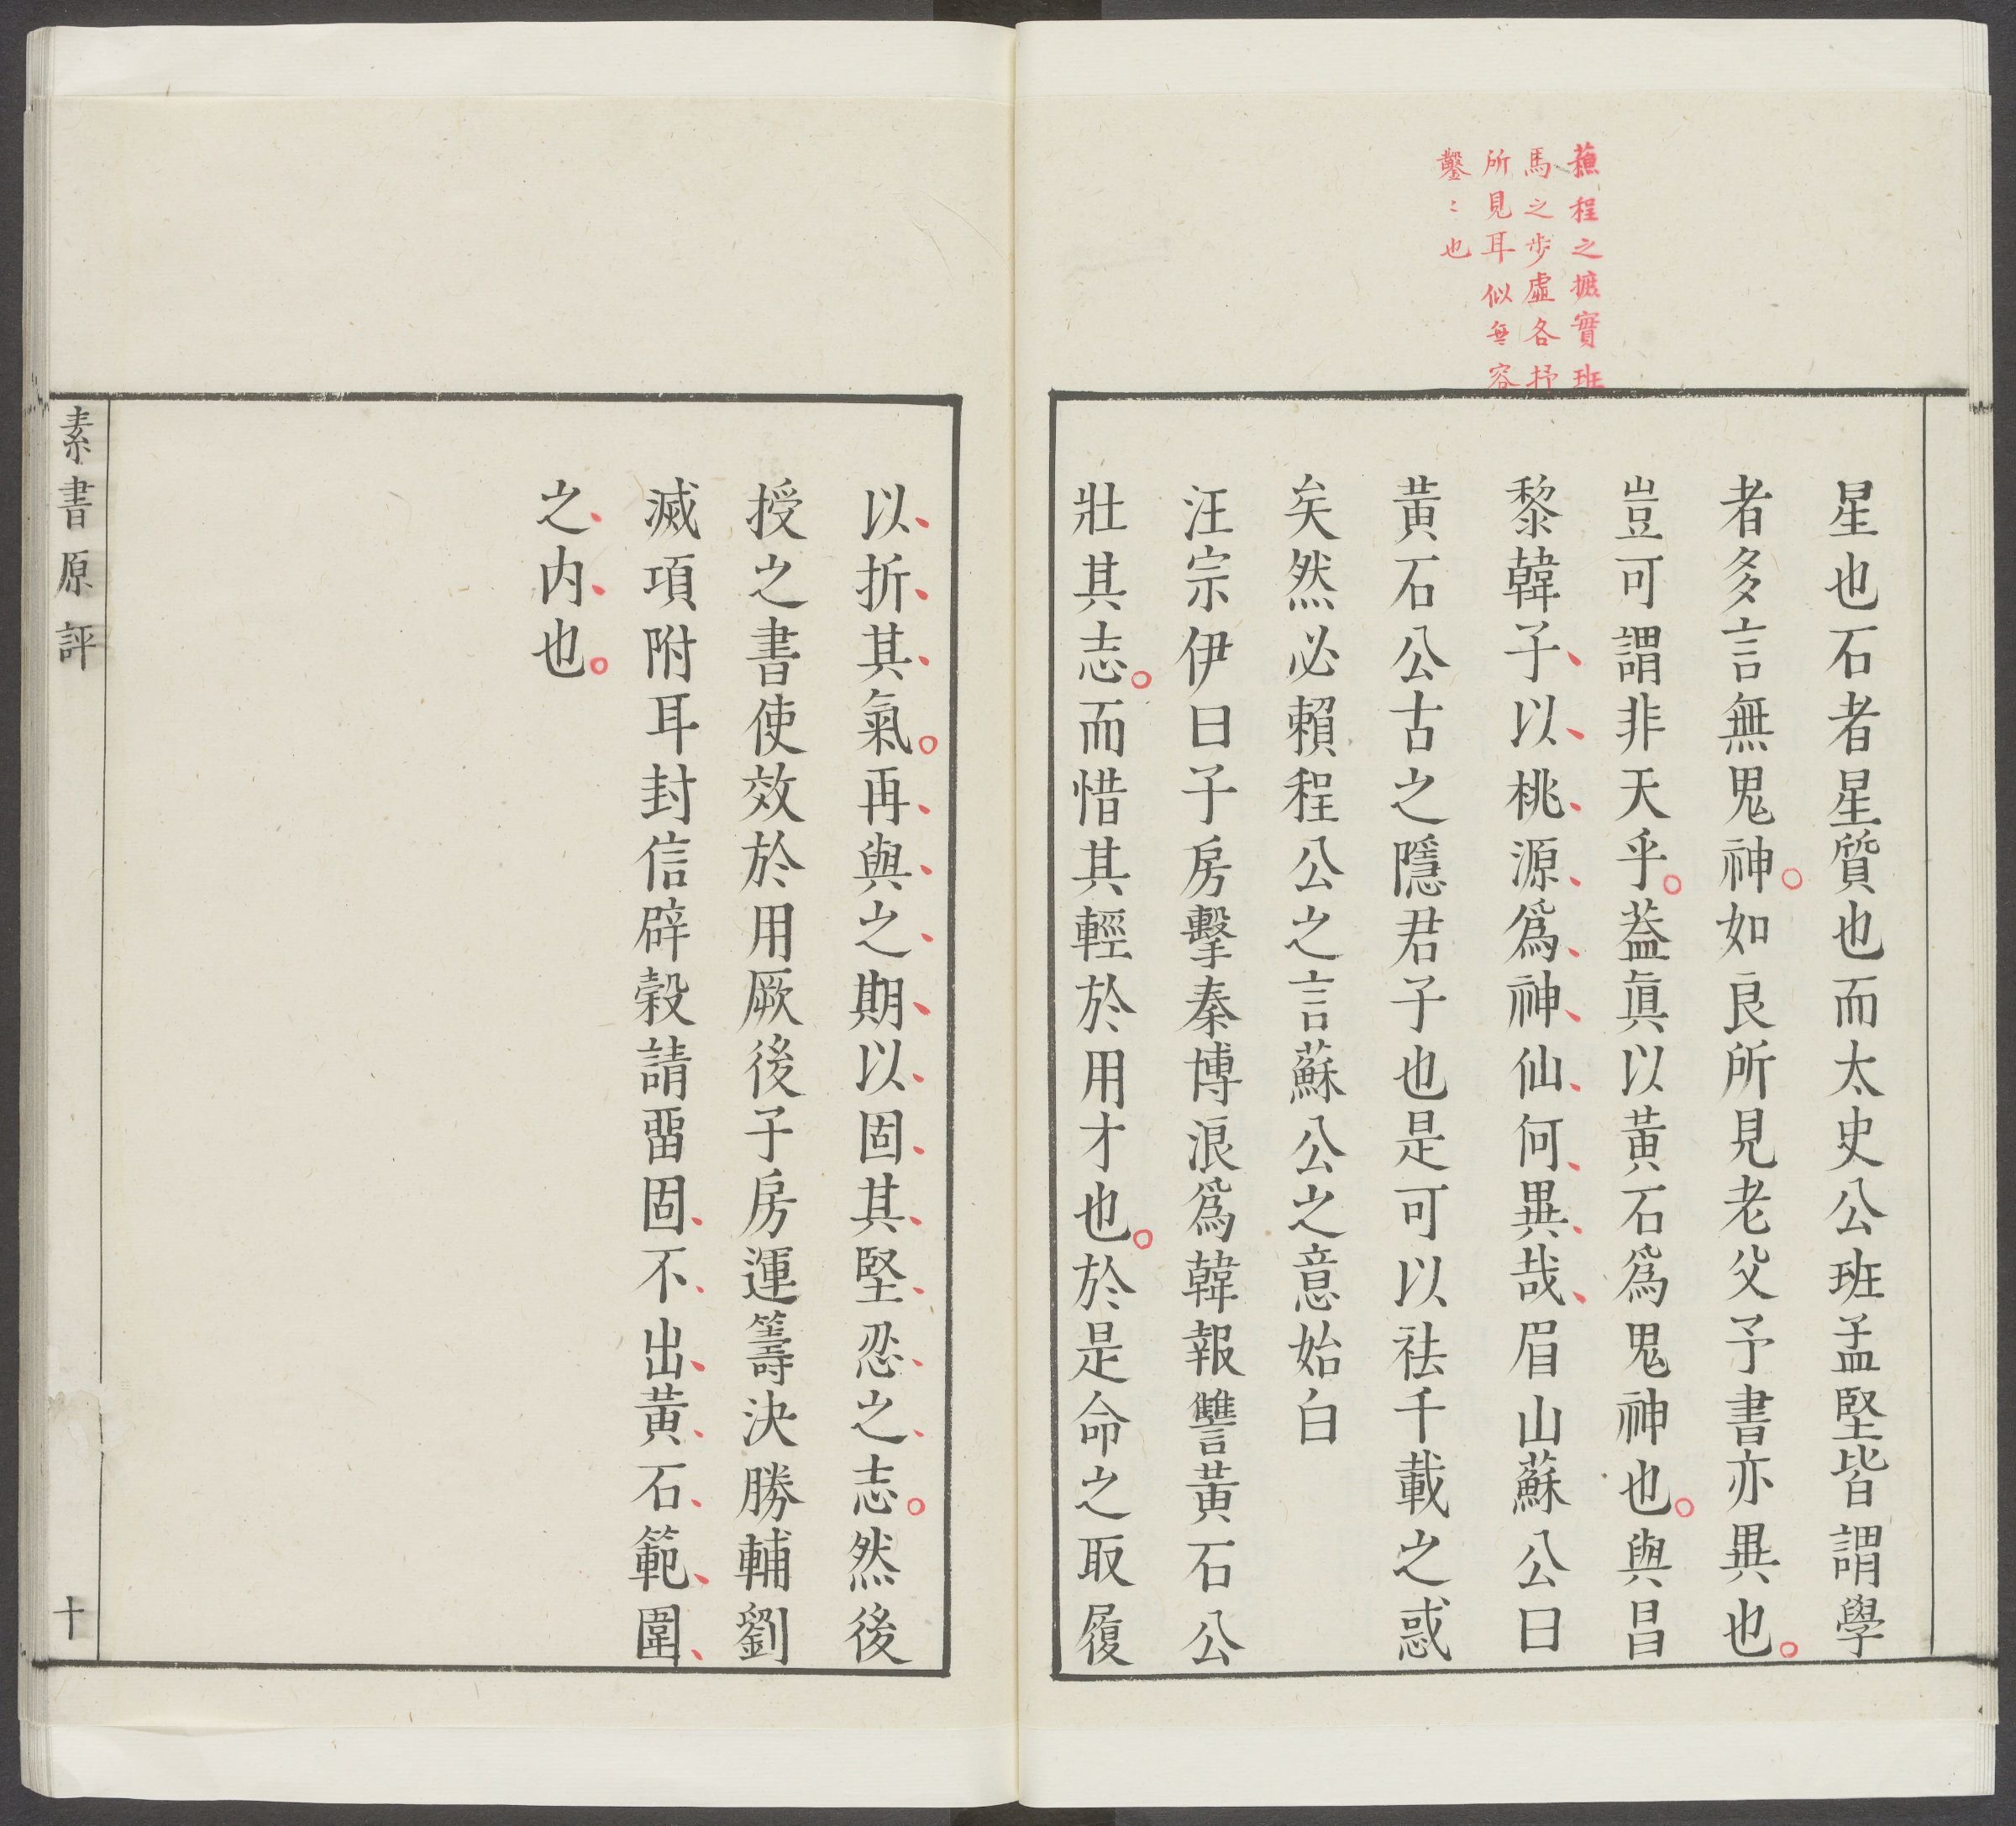 蘓程之摭實班
馬之步虛各抒
所見耳似無容
鑿〻也
星也石者星質也而太史公班孟堅皆謂學
者多言無鬼神如良所見老父予書亦異也
豈可謂非天乎葢眞以黃石爲鬼神也與昌
黎韓子以桃源爲神仙何異哉眉山蘇公曰
黃石公古之隱君子也是可以祛千載之惑
矣然必賴程公之言蘇公之意始白
汪宗伊曰子房擊秦博浪爲韓報讐黃石公
壯其志而惜其輕於用才也於是命之取履
以折其氣再與之期以固其堅忍之志然後
授之書使效於用厥後子房運籌決勝輔劉
滅項附耳封信辟榖請畱固不出黃石範圍
之内也
素書原評
十